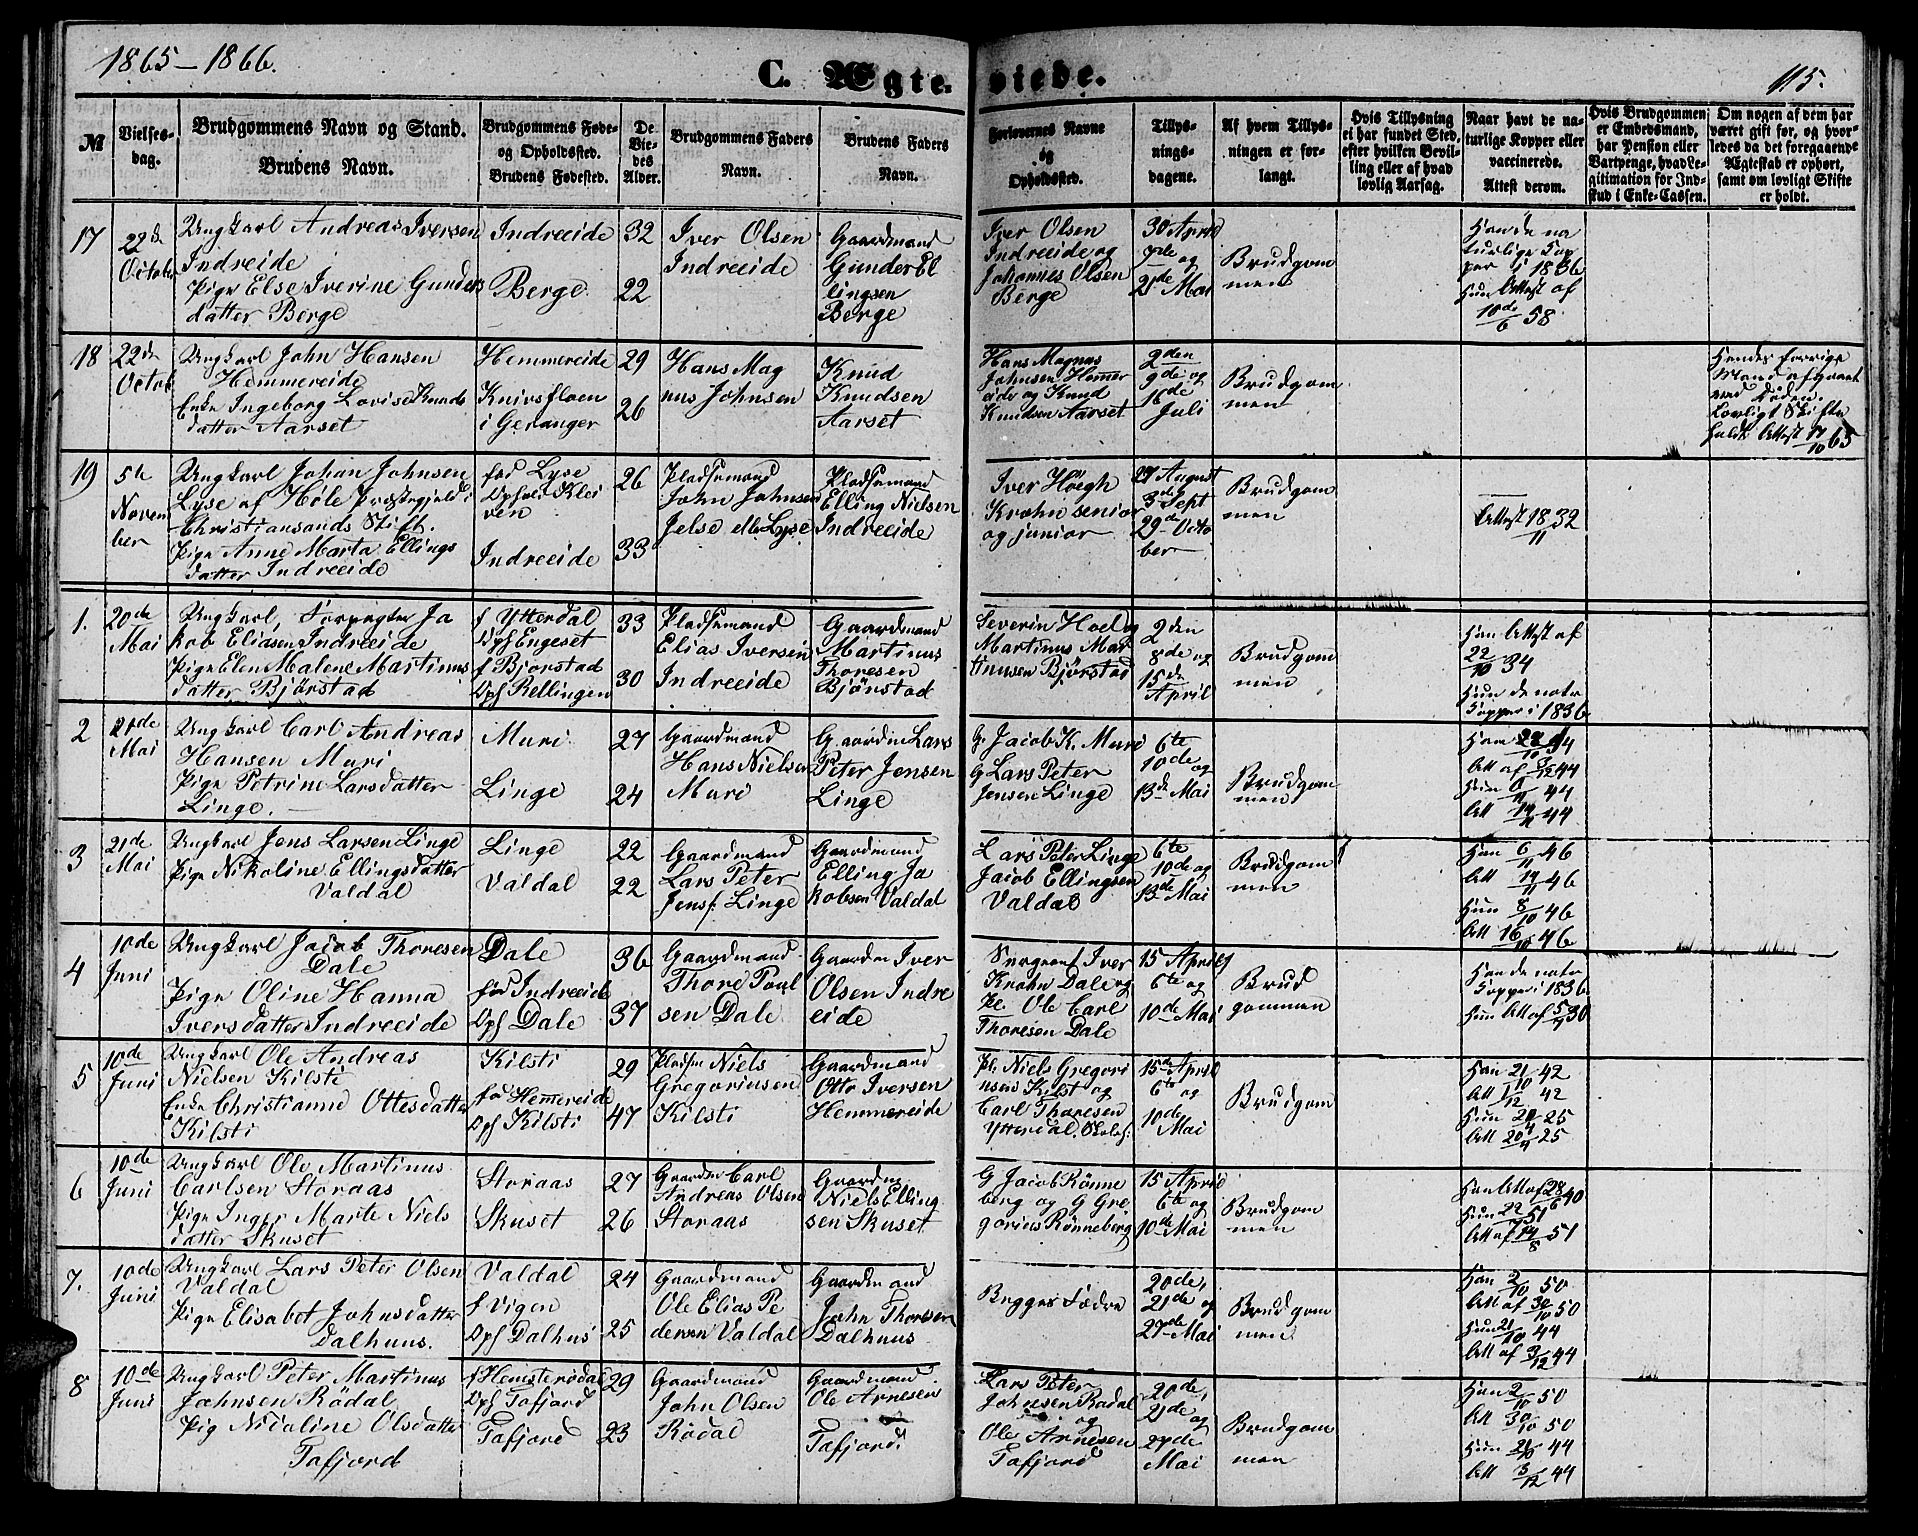 1865-1866.
C. Ægteviede.
115.
№
Vielses-
dag.
Brudgommens Navn og Stand.
Brudens Navn.
Brudgommens Føde-
og Opholdssted.
Brudens Fødested.
De
Vie-
des
Alder.
Brudgommens Faders
Navn.
Brudens Faders
Navn.
Forlovernes Navne
og
Opholdssted.
Tillys-
nings-
dagene.
Af hvem Tillys-
ningen er for-
langt.
Hvis Tillysning
ei har fundet Sted,
efter hvilken Bevil-
ling eller af hvad
lovlig Aarsag.
Naar havt de na-
turlige Kopper eller
vaccinerede.
Attest derom.
Hvis Brudgommen
er Embedsmand,
har Pension eller
Vartpenge, hvad Le-
gitimation for Ind-
skud i Enke-Cassen.
Om nogen af dem har
været gift før, og hvor-
ledes da det foregaaende
Ægteskab er ophørt,
samt om lovligt Skifte
er holdt.
17
22de
October
Ungkarl Andreas Iversen
Indreeide
Pige Else Iverine Gunders
datter Berge
Indreeide
Berge
32
22
Iver Olsen
Indreeide
Gaardmand
Gunder El
lingsen
Berge
Iver Olsen
Indreeide og
Johannes Olsen
Berge
30 April
7de og
21de Mai
Brudgom
men
Han de na
turlige Kop
per i 1836
Hun Attest af
10de/6 58
18
22de
Octob
Ungkarl John Hansen
Hemmereide
Enke Ingeborg Lovise Knuds
datter Aarset
Hemmereide
Knivsfloen
i Geranger
29
26
Hans Mag
nus Johnsen
Knud
Knudsen
Aarset
Hans Magnus
Johnsen Hemer
eide og Knud
Knudsen Aarset
2den
9de og
16de
Juli
Brudgom
men
Hendes forrige
Mand afgaaet
ved Døden.
Lovligt Skifte
holdt Attest 17/10 65
19
5te
Novem
ber
Ungkarl Johan Johnsen
Lyse af Hole Præstegjeld i
Christiansands Stift.
Pige Anne Marta Ellings
datter Indreeide
fød Lyse
Oph ved Klei
ven
Indreeide
26
33
Pladsemand
John Johnsen
Jelse eller Lyse
Pladsemand
Elling Nielsen
Indreeide
Iver Høegh
Krohn senior
og junior
27 August
3de Sept
29de Octo
ber
Brudgom
men
Attest 18/11 32
1.
20de
Mai
Ungkarl, Forpagter Ja
kob Eliasen Indreeide
Pige Elen Malene Martinus
datter Bjørstad
f Ytterdal
Opf Engeset
f Bjorstad
Opf Rellingen
33
30
Pladsemand
Elias Iversen
Indreeide
Gaardmand
Martinus
Thoresen
Bjørstad
Severin Hoel og
Martinus Mar
tinusen Bjørstad
2den
8de og
15de
April
Brudgom
men
Han Attest af
22/10 34
Hun de natr
Kopper i 1836
2
21de
Mai
Ungkarl Carl Andreas
Hansen Muri
Pige Petrine Larsdatter
Linge.
Muri
Linge
27
24
Gaardmand
Hans Nielsen
Muri
Gaardm Lars
Peter Jensen
Linge
G Jacob K. Muri
G Lars Peter
Jensen Linge
6te
10de og
13de Mai
Brudgom
men
Hun 6/11 44
Att 14/11 44
3
21de
Mai
Ungkarl Jens Larsen Linge
Pige Nikoline Ellingsdatter
Valdal
Linge
Valdal
22
22
Gaardmand
Lars Peter
Jens. Linge
Gaardmand
Elling Ja
kobsen Valdal
Lars Peter Linge
Jacob Ellingsen
Valdal
6te
10de og
13de Mai
Brudgom
men
Han 6/11 46
Att 14/11 46
Hun 8/10 46
Att 16/10 46
4
10de
Juni
Ungkarl Jacob Thoresen
Dale
Pige Oline Hanna
Iversdatter Indreeide
Dale
fød Indreeide
Opf Dale
36
37
Gaardmand
Thore Poul
sen Dale
Gaardm Iver
Olsen Indre
eide
Sergeant Iver
Krohn Dale og
Pl. Ole Carl
Thoresen Dale
15 April
6te og
10de Mai
Brud
gommen
Han de natr
Kopper i 1836
Hun Att af 5/7 30
5
10de
Juni
Ungkarl Ole Andreas
Nielsen Kilsti
Enke Christianne Ottesdatter
Kilsti
Kilsti
fød Hemereide
Opf Kilsti
29
47
Pladsm Niels
Gregoriusen
Kilsti
Gaardmand
Otto Iversen
Hemmereide
Pl. Niels Gregori
usen Kilsti og
Carl Thoresen
Ytterdal. Skolef:
15de April
6te og
10de
Mai
Brudgom
Han 21/10 42
Att 1/12 42
6
10de
Juni
Ungkarl Ole Martinus
Carlsen Storaas
Pige Inger Marte Niels
datter Skuset
Storaas
Skuset
27
26
Gaardm Carl
Andreas Olsen
Storaas
Gaardm
Niels Elling
sen Skuset
G Jacob Rønne
berg og G Gre
gorius Rønneberg
15 April
6te og
10de Mai
Brudgom
men
Han Att af 28/6 40
Hun 22/7 51
Att af 14/8 51
7.
10de
Juni
Ungkarl Lars Peter Olsen
Valdal
Pige Elisabet Johnsdatter
Dalhuus.
Valdal
f Vigen
Opf Dalhus
24
25
Gaardmand
Ole Elias Pe
dersen Valdal
Gaardmand
John Thoresen
Dalhuus
Begges Fædre
20de,
21de og
27de Mai
Brudgom
men
Han 2/10 50
Att af 30/10 50
Hun 21/10 44
Att af 3/12 44
8
10de
Juni
Ungkarl Peter Martinus
Johnsen Rødal
Pig Nidoline Olsdatter
Tafjord
f Hemsterødal
Opf Tafjord
Tafjord
29
23
Gaardmand
John Olsen
Rødal
Gaardmand
Ole Arnesen
Tafjord.
Lars Peter
Johnesen Rødal
og
Ole Arnesen
Tafjord
20de,
21de og
27de
Mai
Brudgom
men
Han 2/10 50
Att 30/10 50
Hun 21/10 44
Att 3/12 44